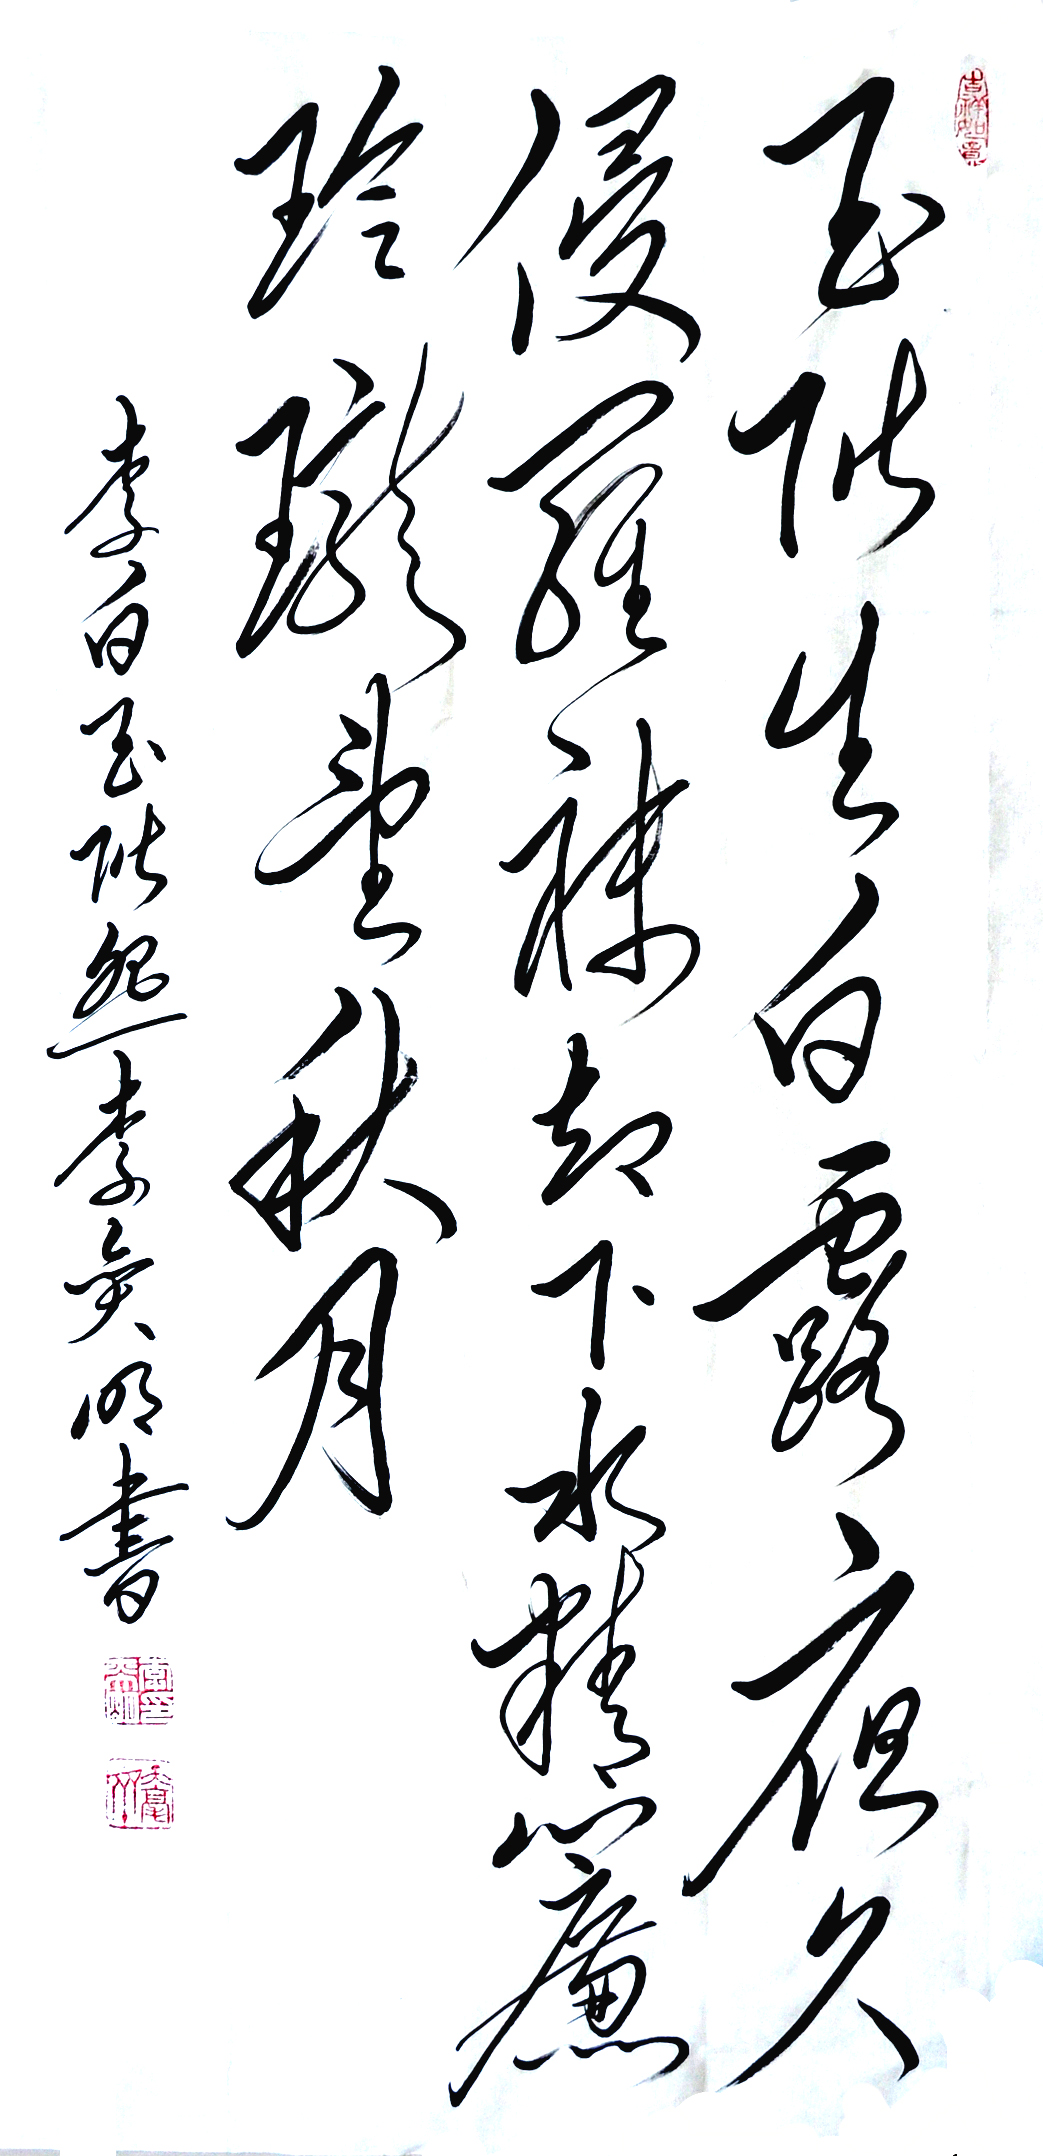 吉祥如意
玉階生白露夜久
侵羅袜却下水精簾
玲瓏望秋月
李白玉階怨李明書